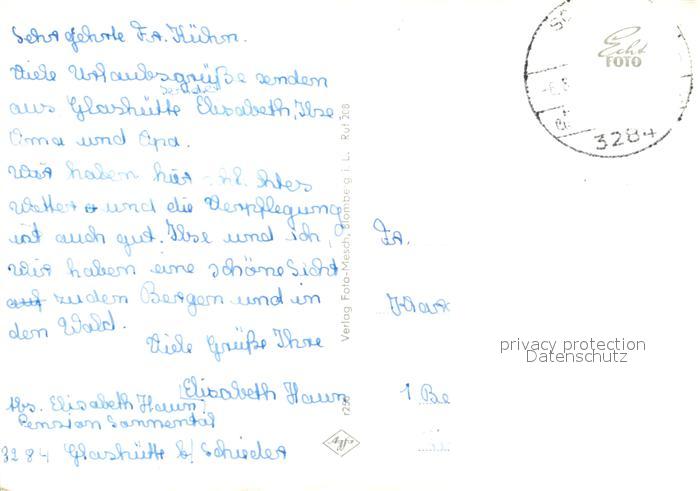 Sehr gehrte Fr. Kühn.
Viele Urlaubsgrüße senden
aus Glashütte Elisabeth, Ilse
Oma und Opa.
Wir haben hier
Wetter und die Verpflegung
ist auch gut. Ilse und ich,
Wir haben eine schöne Sicht
auf zu den Bergen und in
den Wald.
Viele Grüße Ihre
Elisabeth Haun
Abs. Elisabeth Haun
Pension Sonnental
3284 Glashütte b/ Schieder
Verlag Foto-Mesch, Blomberg i. L. Ruf 208
Echt
FOTO
3284
Fr.
1 Be
privacy protection
Datenschutz